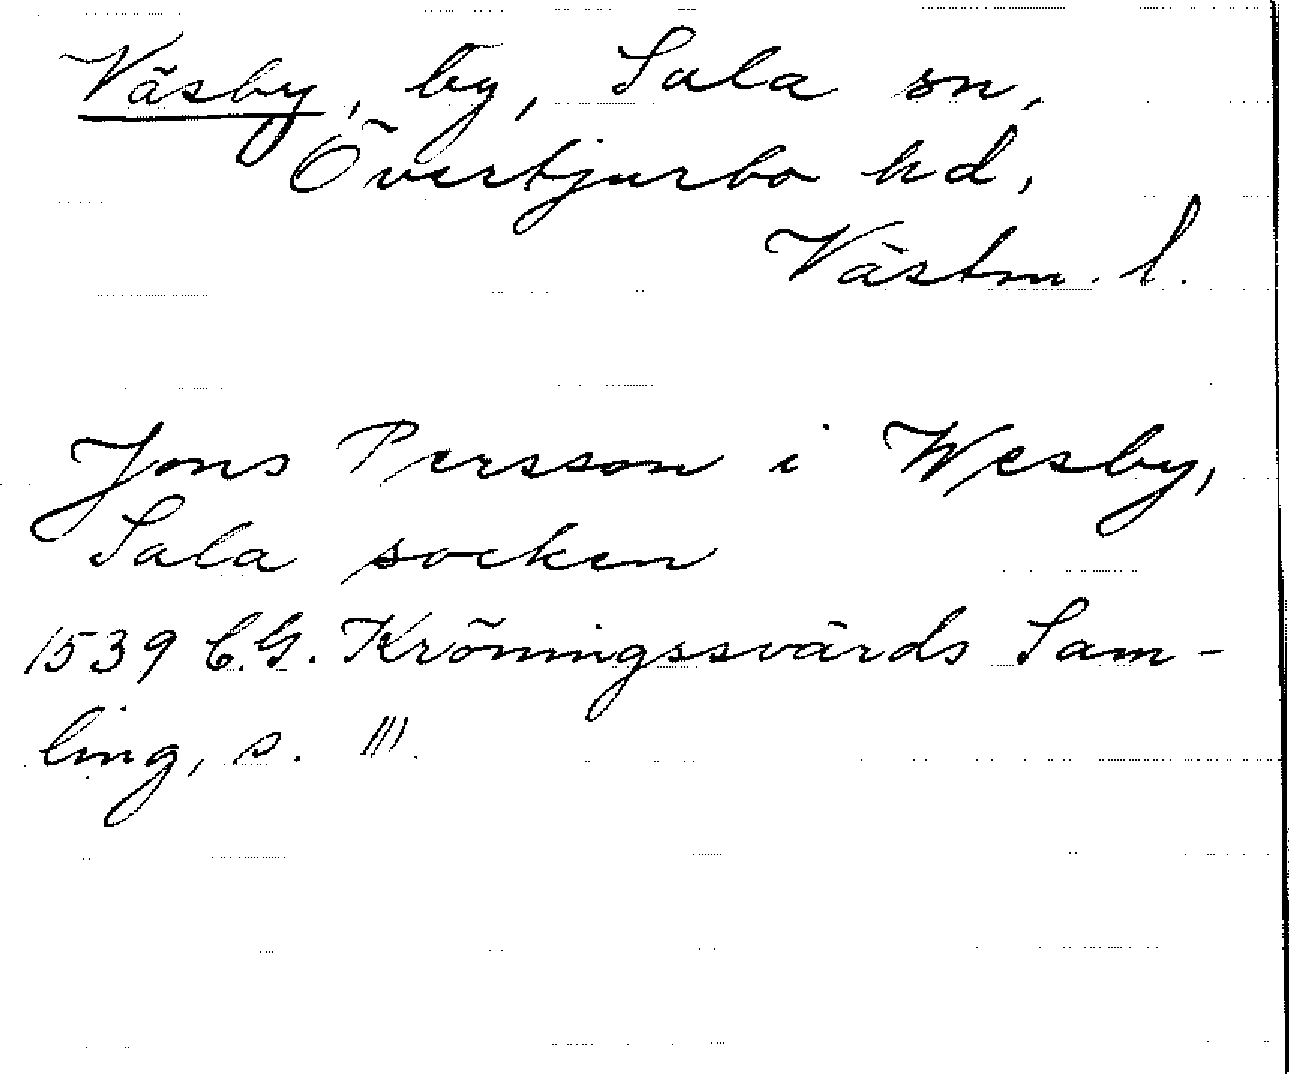 Väsby, by, Sala sn,
Övertjurbo hd,
Västm. l.
Jons Persson i Wesby,
Sala socken
1539 C.G. Kröningssvärds Sam-
ling, s. 111.